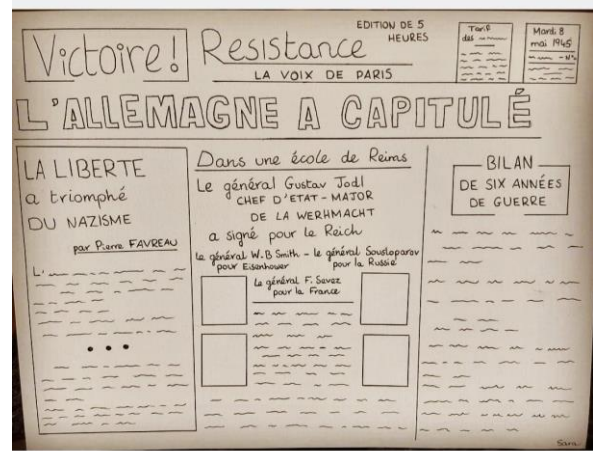 Victoire!
Resistance
LA VOIX DE PARIS
EDITION DE 5
HEURES
Tarif
des
Mardi 8
mai 1945
L'ALLEMAGNE A CAPITULÉ
LA LIBERTE
a triomphé
DU NAZISME
par Pierre FAVREAU
L'
Dans une école de Reims
Le général Gustav Jodl
CHEF D'ETAT-MAJOR
DE LA WERHMACHT
a signé pour le Reich
Le général W.B Smith - le général Sousloparov
pour Eisenhower pour la Russie
Le général F. Sevez
pour la France
BILAN
DE SIX ANNÉES
DE GUERRE
Sara